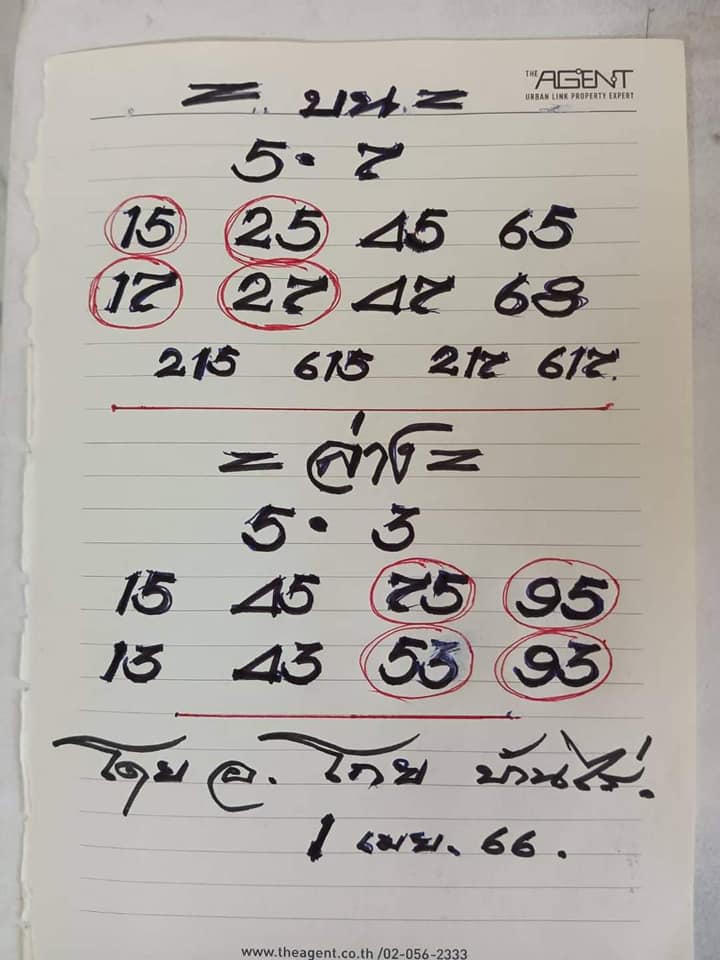 THE AGENT
URBAN LINK PROPERTY EXPERT
= บน =
5 • 7
15 25 45 65
17 27 47 68
215 615 217 617.
= ล่าง =
5 • 3
15 45 75 95
13 43 53 93
โดย อ. โกย บ้านไร่.
1 เมย. 66.
www.theagent.co.th /02-056-2333